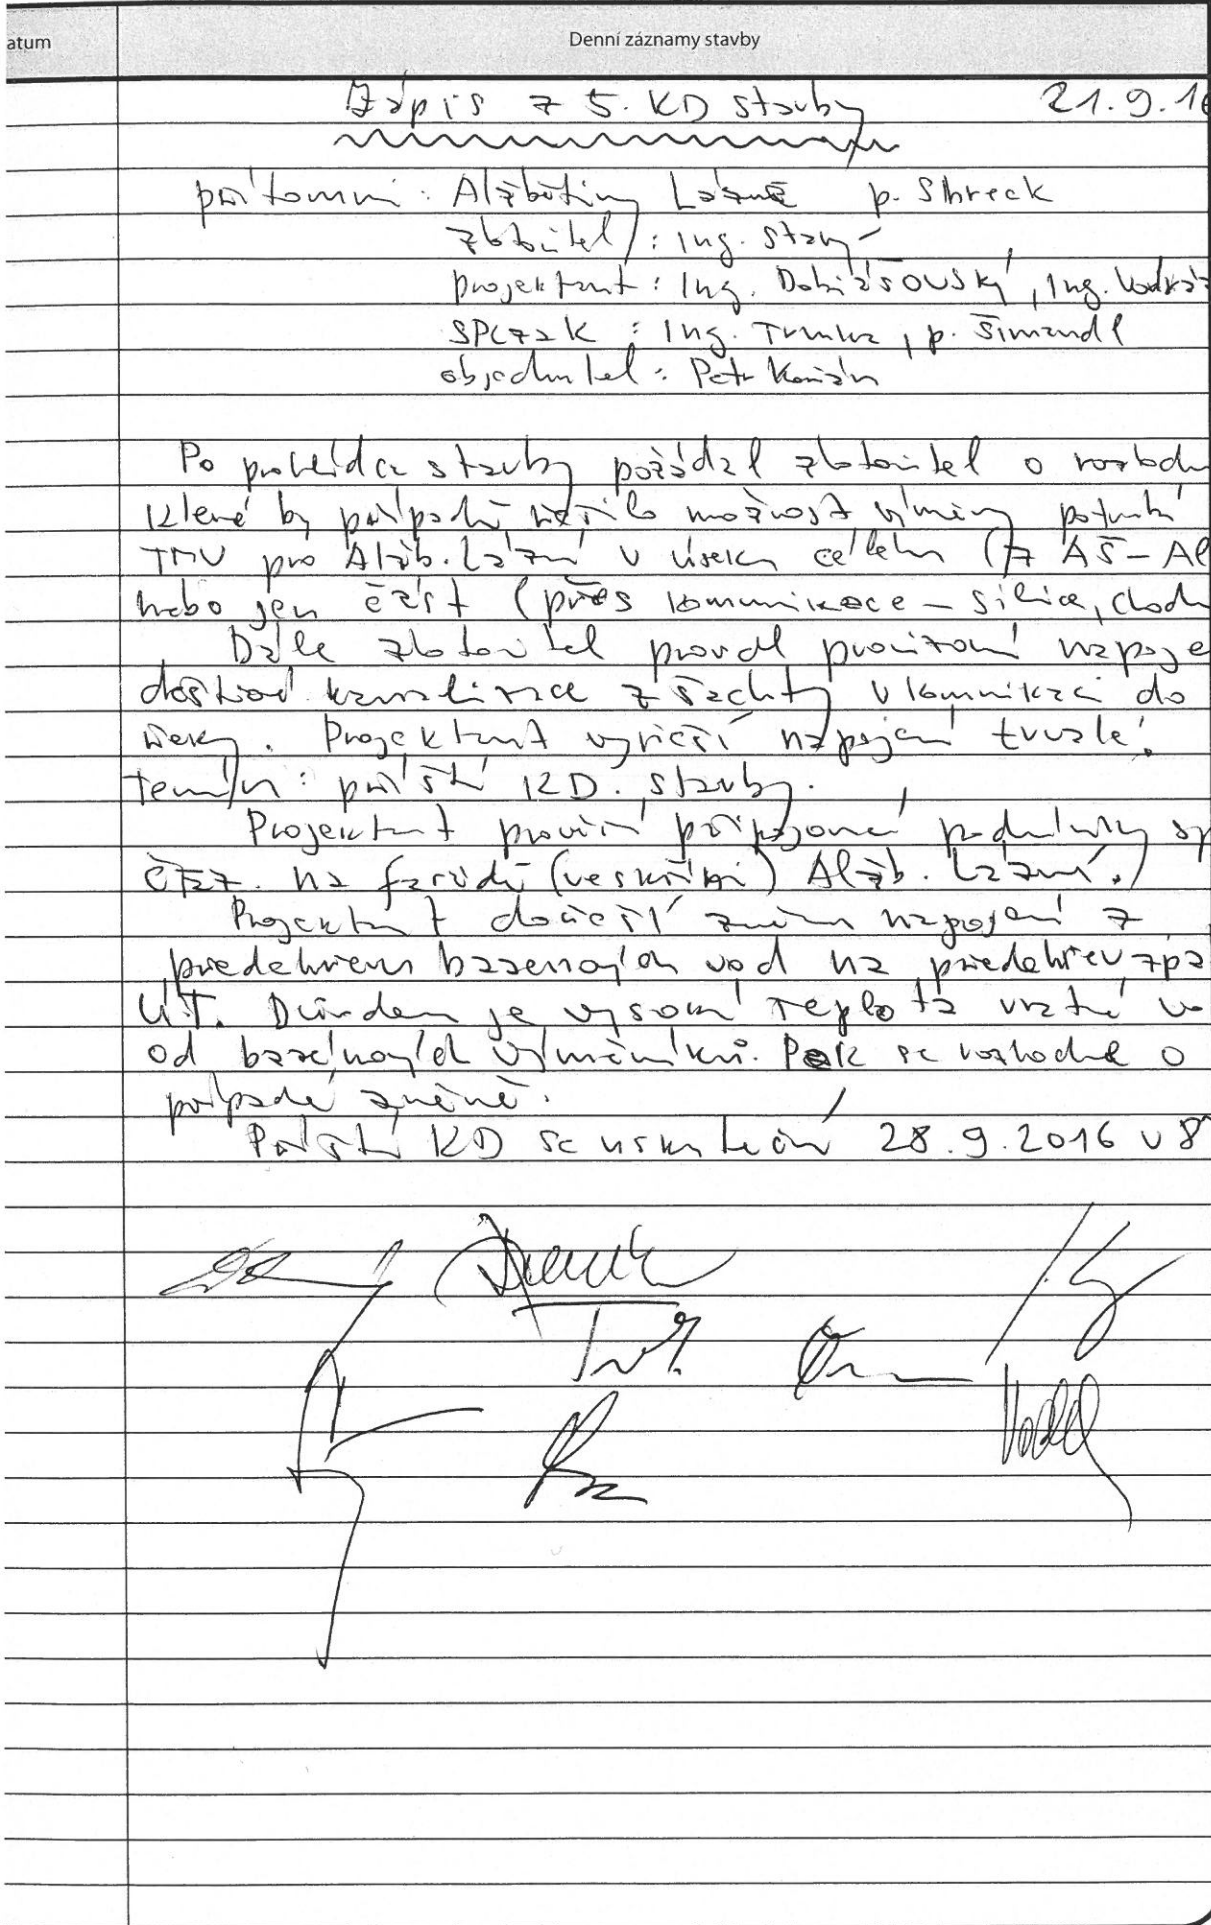 atum
Denní záznamy stavby
Zápis z 5. KD stavby 21.9.16
přítomni: Alžbětiny Lázně p. Shreck
zhotovitel: Ing. Starý
projektant: Ing. Dobiášovský, Ing.
SPCzak: Ing. Trnka, p. Šimandl
objednatel: Petr
Po prohlídce stavby požádal zhotovitel o rozhodn
které by případně řešilo možnost výměny potrubí
TMV pro Alžb. Lázní v úseku celém (z AŠ-Al
nebo jen část (přes komunikace - silnice, chodn
Dále zhotovitel provedl provizorní napoje
dešťové kanalizace z šachty v komunikaci do
řeky. Projektant vyřeší napojení trvalé.
Termín: příští KD. stavby.
Projektant prověří připojovací podmínky sp
ČEZ. na Alžb. Lázní.
Projektant dořeší změnu napojení z
předehřevu bazenových vod na předehřev zpá
ÚT. Důvodem je vysoká teplota vratné vo
od bazénových výměníků. Pak se rozhodne o
případě změně.
Příští KD se uskuteční 28.9.2016 v 8